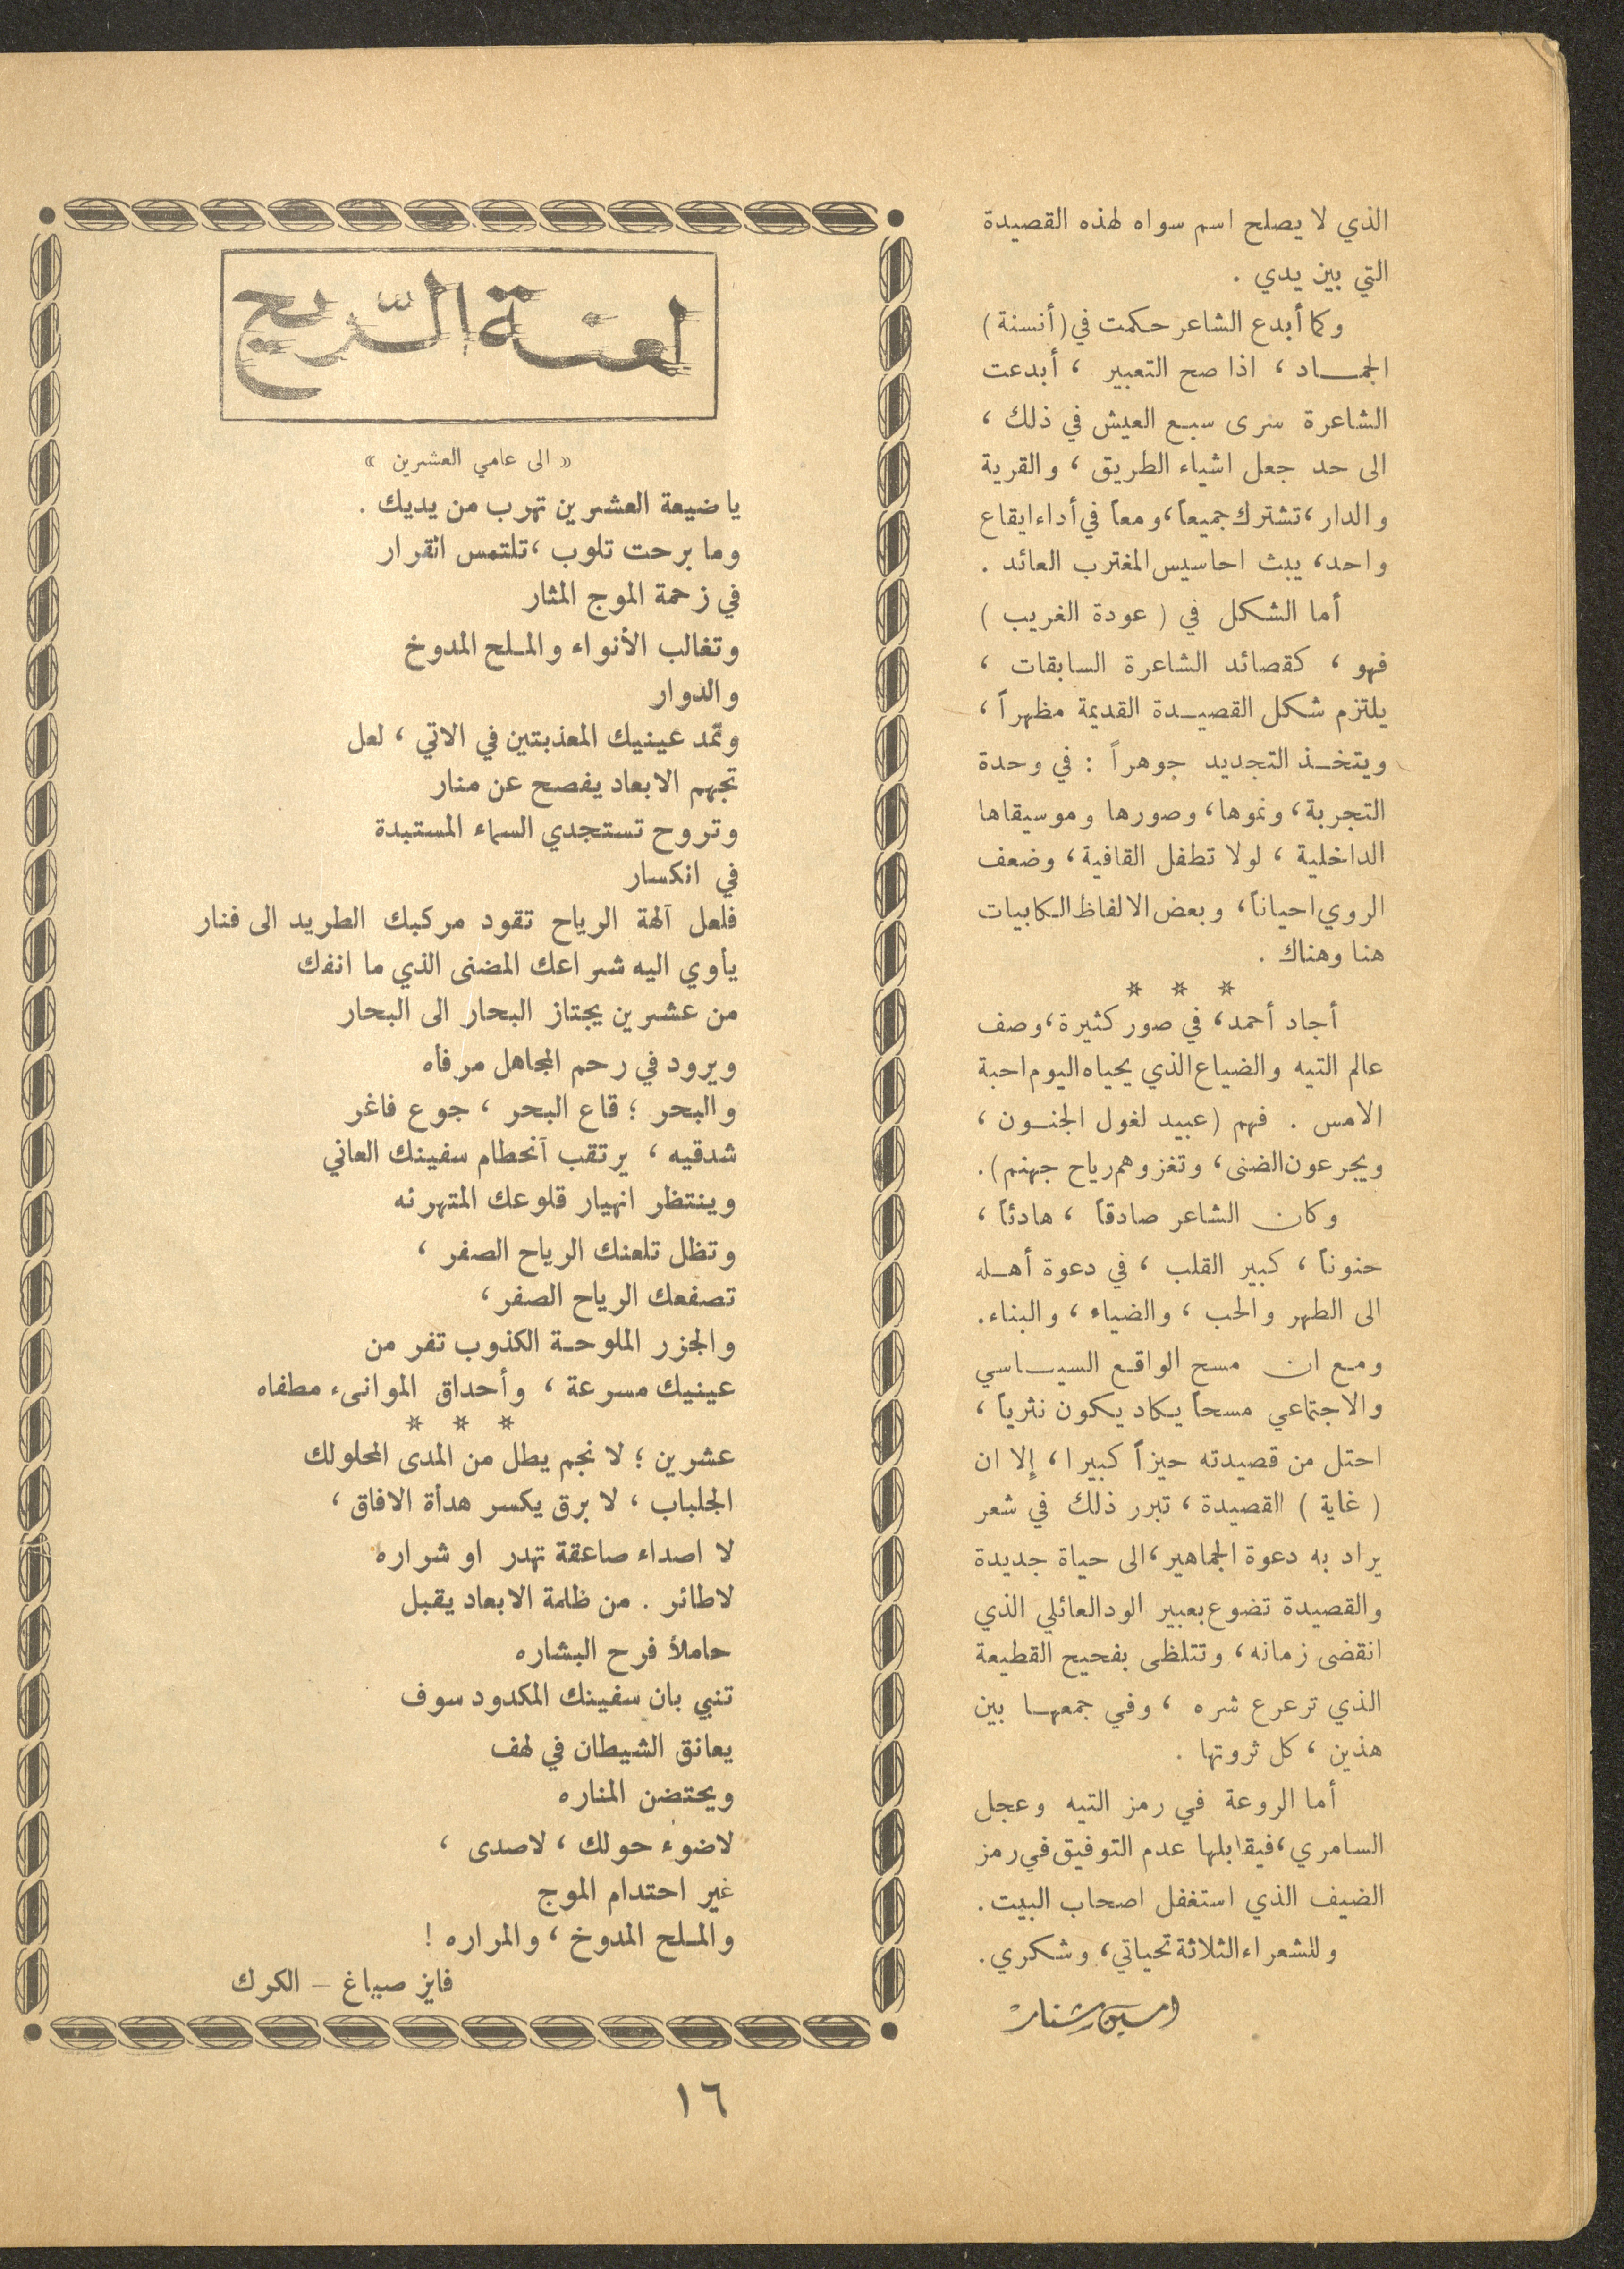 الذي لا يصلح اسم سواه لهذه القصيدة
التي بين يدي .
وكما أبدع الشاعر حكمت في (أنسنة)
الجمـــاد ، اذا صح التعبير ، أبدعت
الشاعرة سرى سبـع العيش في ذلك ،
الى حد جعل اشياء الطريق ، والقرية
والدار ، تشترك جميعاً ، ومعاً في أداء ايقاع
واحد ، يبث احاسيس المغترب العائد .
أما الشكل في ( عودة الغريب )
فهو ، كقصائد الشاعرة السابقات ،
يلتزم شكل القصيـــدة القديمة مظهراً ،
ويتخـــذ التجديد جوهراً : في وحدة
التجربة ، ونموها ، وصورها وموسيقاها
الداخلية ، لولا تطفل القافية ، وضعف
الروي احياناً ، وبعض الالفاظ الكابيات
هنا وهناك .
* * *
أجاد أحمد ، في صور كثيرة ، وصف
عالم التيه والضياع الذي يحياه اليوم احبة
الامس . فهم (عبيد لغول الجنـــون ،
ويجرعون الضنى ، وتغزوهم رياح جهنم ) .
وكان الشاعر صادقاً ، هادئاً ،
حنوناً ، كبير القلب ، في دعوة أهــله
الى الطهر والحب ، والضياء ، والبناء .
ومـع ان مسح الواقـع السيـــاسي
والاجتماعي مسحاً يكاد يكون نثرياً ،
احتل من قصيدته حيزاً كبيرا ، إلا ان
( غاية ) القصيدة ، تبرر ذلك في شعر
يراد به دعوة الجماهير ، الى حياة جديدة
والقصيدة تضوع بعبير الود العائلي الذي
انقضى زمانه ، وتتلظى بفحيح القطيعة
الذي ترعرع شره ، وفي جمعهــا بين
هذين ، كل ثروتها .
أما الروعة في رمز التيه وعجل
السامري ، فيقابلها عدم التوفيق في رمز
الضيف الذي استغفل اصحاب البيت .
وللشعراء الثلاثة تحياتي ، وشكري .
امين شنار
لعنة الريح
« الى عامي العشرين »
يا ضيعة العشرين تهرب من يديك .
وما برحت تلوب ، تلتمس القرار
في زحمة الموج المثار
وتغالب الأنواء والمــلح المدوخ
والدوار
وتمد عينيك المعذبتين في الاتي ، لعل
تجهم الابعاد يفصح عن منار
وتروح تستجدي السماء المستبدة
في انكسار
فلعل آلهة الرياح تقود مركبك الطريد الى فنار
يأوي اليه شراعك المضنى الذي ما انفك
من عشرين يجتاز البحار الى البحار
ويرود في رحم المجاهل مرفأه
والبحر ؛ قاع البحر ، جوع فاغر
شدقيه ، يرتقب آنحطام سفينك العاني
وينتظر انهيار قلوعك المتهرئه
وتظل تلعنك الرياح الصفر ،
تصفعك الرياح الصفر ،
والجزر الملوحــة الكذوب تفر من
عينيك مسرعة ، وأحداق الموانىء مطفاه
* * *
عشرين ؛ لا نجم يطل من المدى المحلولك
الجلباب ، لا برق يكسر هدأة الافاق ،
لا اصداء صاعقة تهدر او شراره
لا طائر . من ظلمة الابعاد يقبل
حاملاً فرح البشاره
تنبي بان سفينك المكدود سوف
يعانق الشيطان في لهف
ويحتضن المناره
لا ضوء حولك ، لا صدى ،
غير احتدام الموج
والمــلح المدوخ ، والمراره !
فايز صياغ – الكرك
١٦